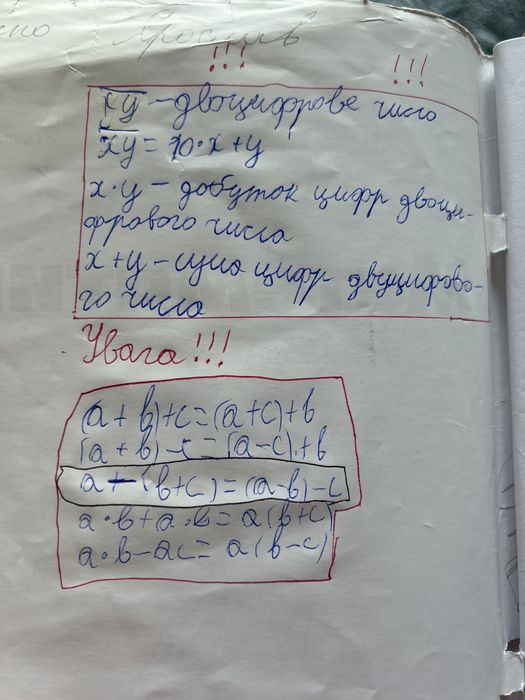 !!! !!!
xy – двоцифрове число
xy = 10·x+y
x·y – добуток цифр двоци-
фрового числа
x+y – сума цифр двуцифрово-
го числа
Увага!!!
(a + b)+c=(a+c)+b
(a + b)–c=(a–c)+b
a – (b+c)=(a–b)–c
a·b+a·b= a(b+c)
a·b–ac= a(b–c)